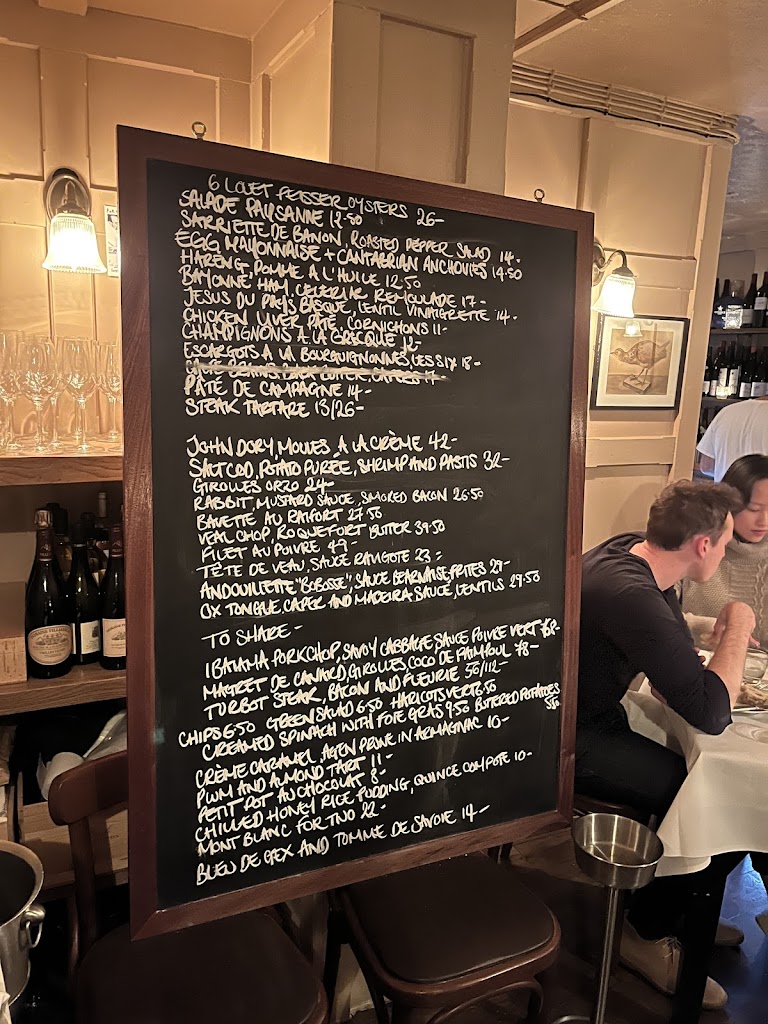 6 LOUET FEISSER OYSTERS 26-
SALADE PAYSANNE 12.50
SARRIETTE DE BANON, ROASTED PEPPER SALAD 14-
EGG MAYONNAISE + CANTABRIAN ANCHOVIES 14.50
HARENG, POMME A L'HUILE 12.50
BAYONNE HAM, CELERIAC REMOULADE 17-
JESUS DU PAYS BASQUE, LENTIL VINAIGRETTE 14-
CHICKEN LIVER PÂTÉ, CORNICHONS 11-
CHAMPIGNONS À LA GRECQUE 12-
ESCARGOTS À LA BOURGUIGNONNE LES SIX 18-
PÂTÉ DE CAMPAGNE 14-
STEAK TARTARE 13/26-
JOHN DORY, MOULES À LA CRÈME 42-
SALT COD, POTATO PURÉE, SHRIMP AND PASTIS 32-
GIROLLES ORZO 24-
RABBIT, MUSTARD SAUCE, SMOKED BACON 26.50
BAVETTE AU RAIFORT 27.50
VEAL CHOP, ROQUEFORT BUTTER 39.50
FILET AU POIVRE 49-
TÊTE DE VEAU, SAUCE RAVIGOTE 23-
ANDOUILLETTE "BOBOSSE", SAUCE BEARNAISE, FRITES 29-
OX TONGUE, CAPER AND MADEIRA SAUCE, LENTILS 29.50
TO SHARE-
IBAIAMA PORKCHOP, SAVOY CABBAGE SAUCE POIVRE VERT 68-
MAGRET DE CANARD, GIROLLES, COCO DE PAIMPOL 78-
TURBOT STEAK, BACON AND FLEURIE 56/112-
CHIPS 6.50 GREEN SALAD 6.50 HARICOTS VERTS 6.50
CREAMED SPINACH WITH FOIE GRAS 9.50 BUTTERED POTATOES 5.50
CRÈME CARAMEL, AGEN PRUNE IN ARMAGNAC 10-
PLUM AND ALMOND TART 11-
PETIT POT AU CHOCOLAT 8-
CHILLED HONEY RICE PUDDING, QUINCE COMPOTE 10-
MONT BLANC FOR TWO 22-
BLEU DE GEX AND TOMME DE SAVOIE 14-